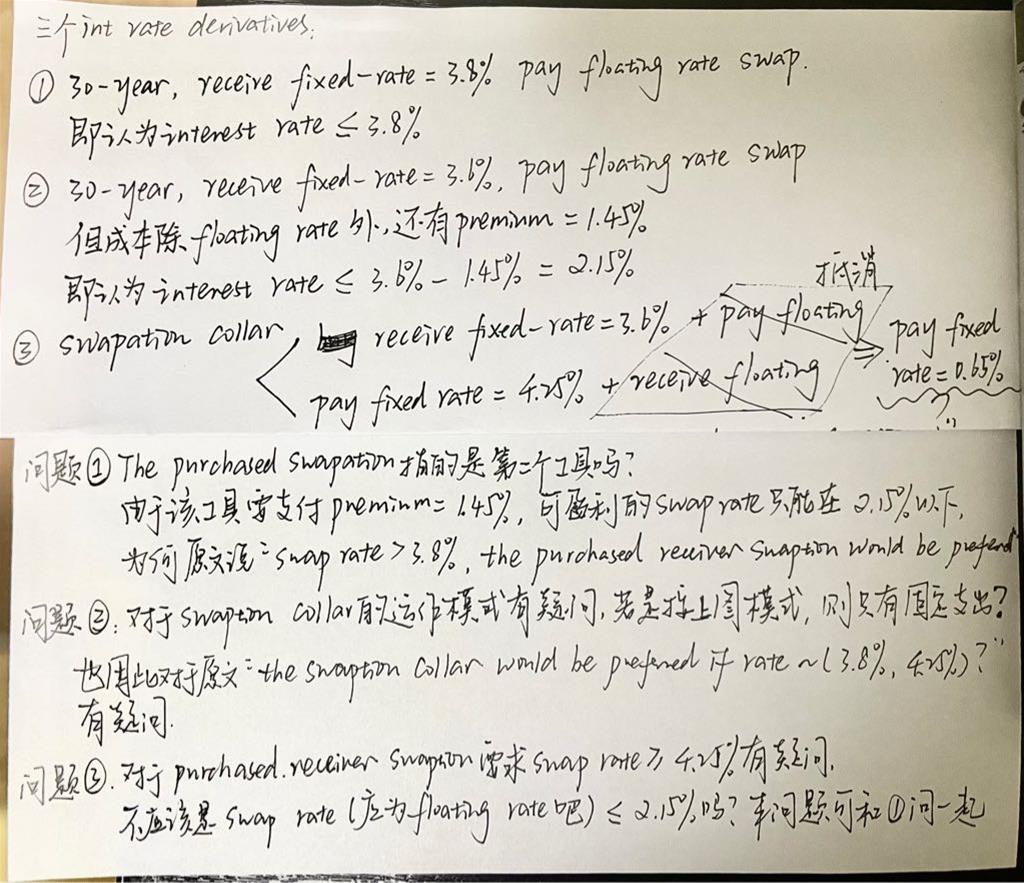 三个int rate derivatives:
① 30-year, receive fixed-rate = 3.8% pay floating rate swap.
即认为interest rate ≤ 3.8%
② 30-year, receive fixed-rate = 3.6%, pay floating rate swap
但成本除floating rate外,还有premium = 1.45%
即认为interest rate ≤ 3.6% - 1.45% = 2.15%
抵消
③ swapation collar
receive fixed-rate = 3.6% + pay floating
pay fixed rate = 4.25% + receive floating
⇒ pay fixed
rate = 0.65%
问题① The purchased swapation指的是第二个工具吗?
由于该工具需支付premium = 1.45%, 可盈利的swap rate只能在2.15%以下,
为何原文说"swap rate > 3.8%, the purchased receiver swaption would be prefered"
问题②: 对于swaption collar的运作模式有疑问,若是按上图模式,则只有固定支出?
也因此对于原文"the swaption collar would be prefered if rate ~ (3.8%, 4.25%)?"
有疑问.
问题③. 对于purchased receiver swaption要求swap rate ≥ 4.25%有疑问,
不应该是swap rate (应为floating rate吧) ≤ 2.15%吗? 本问题可和①问一起